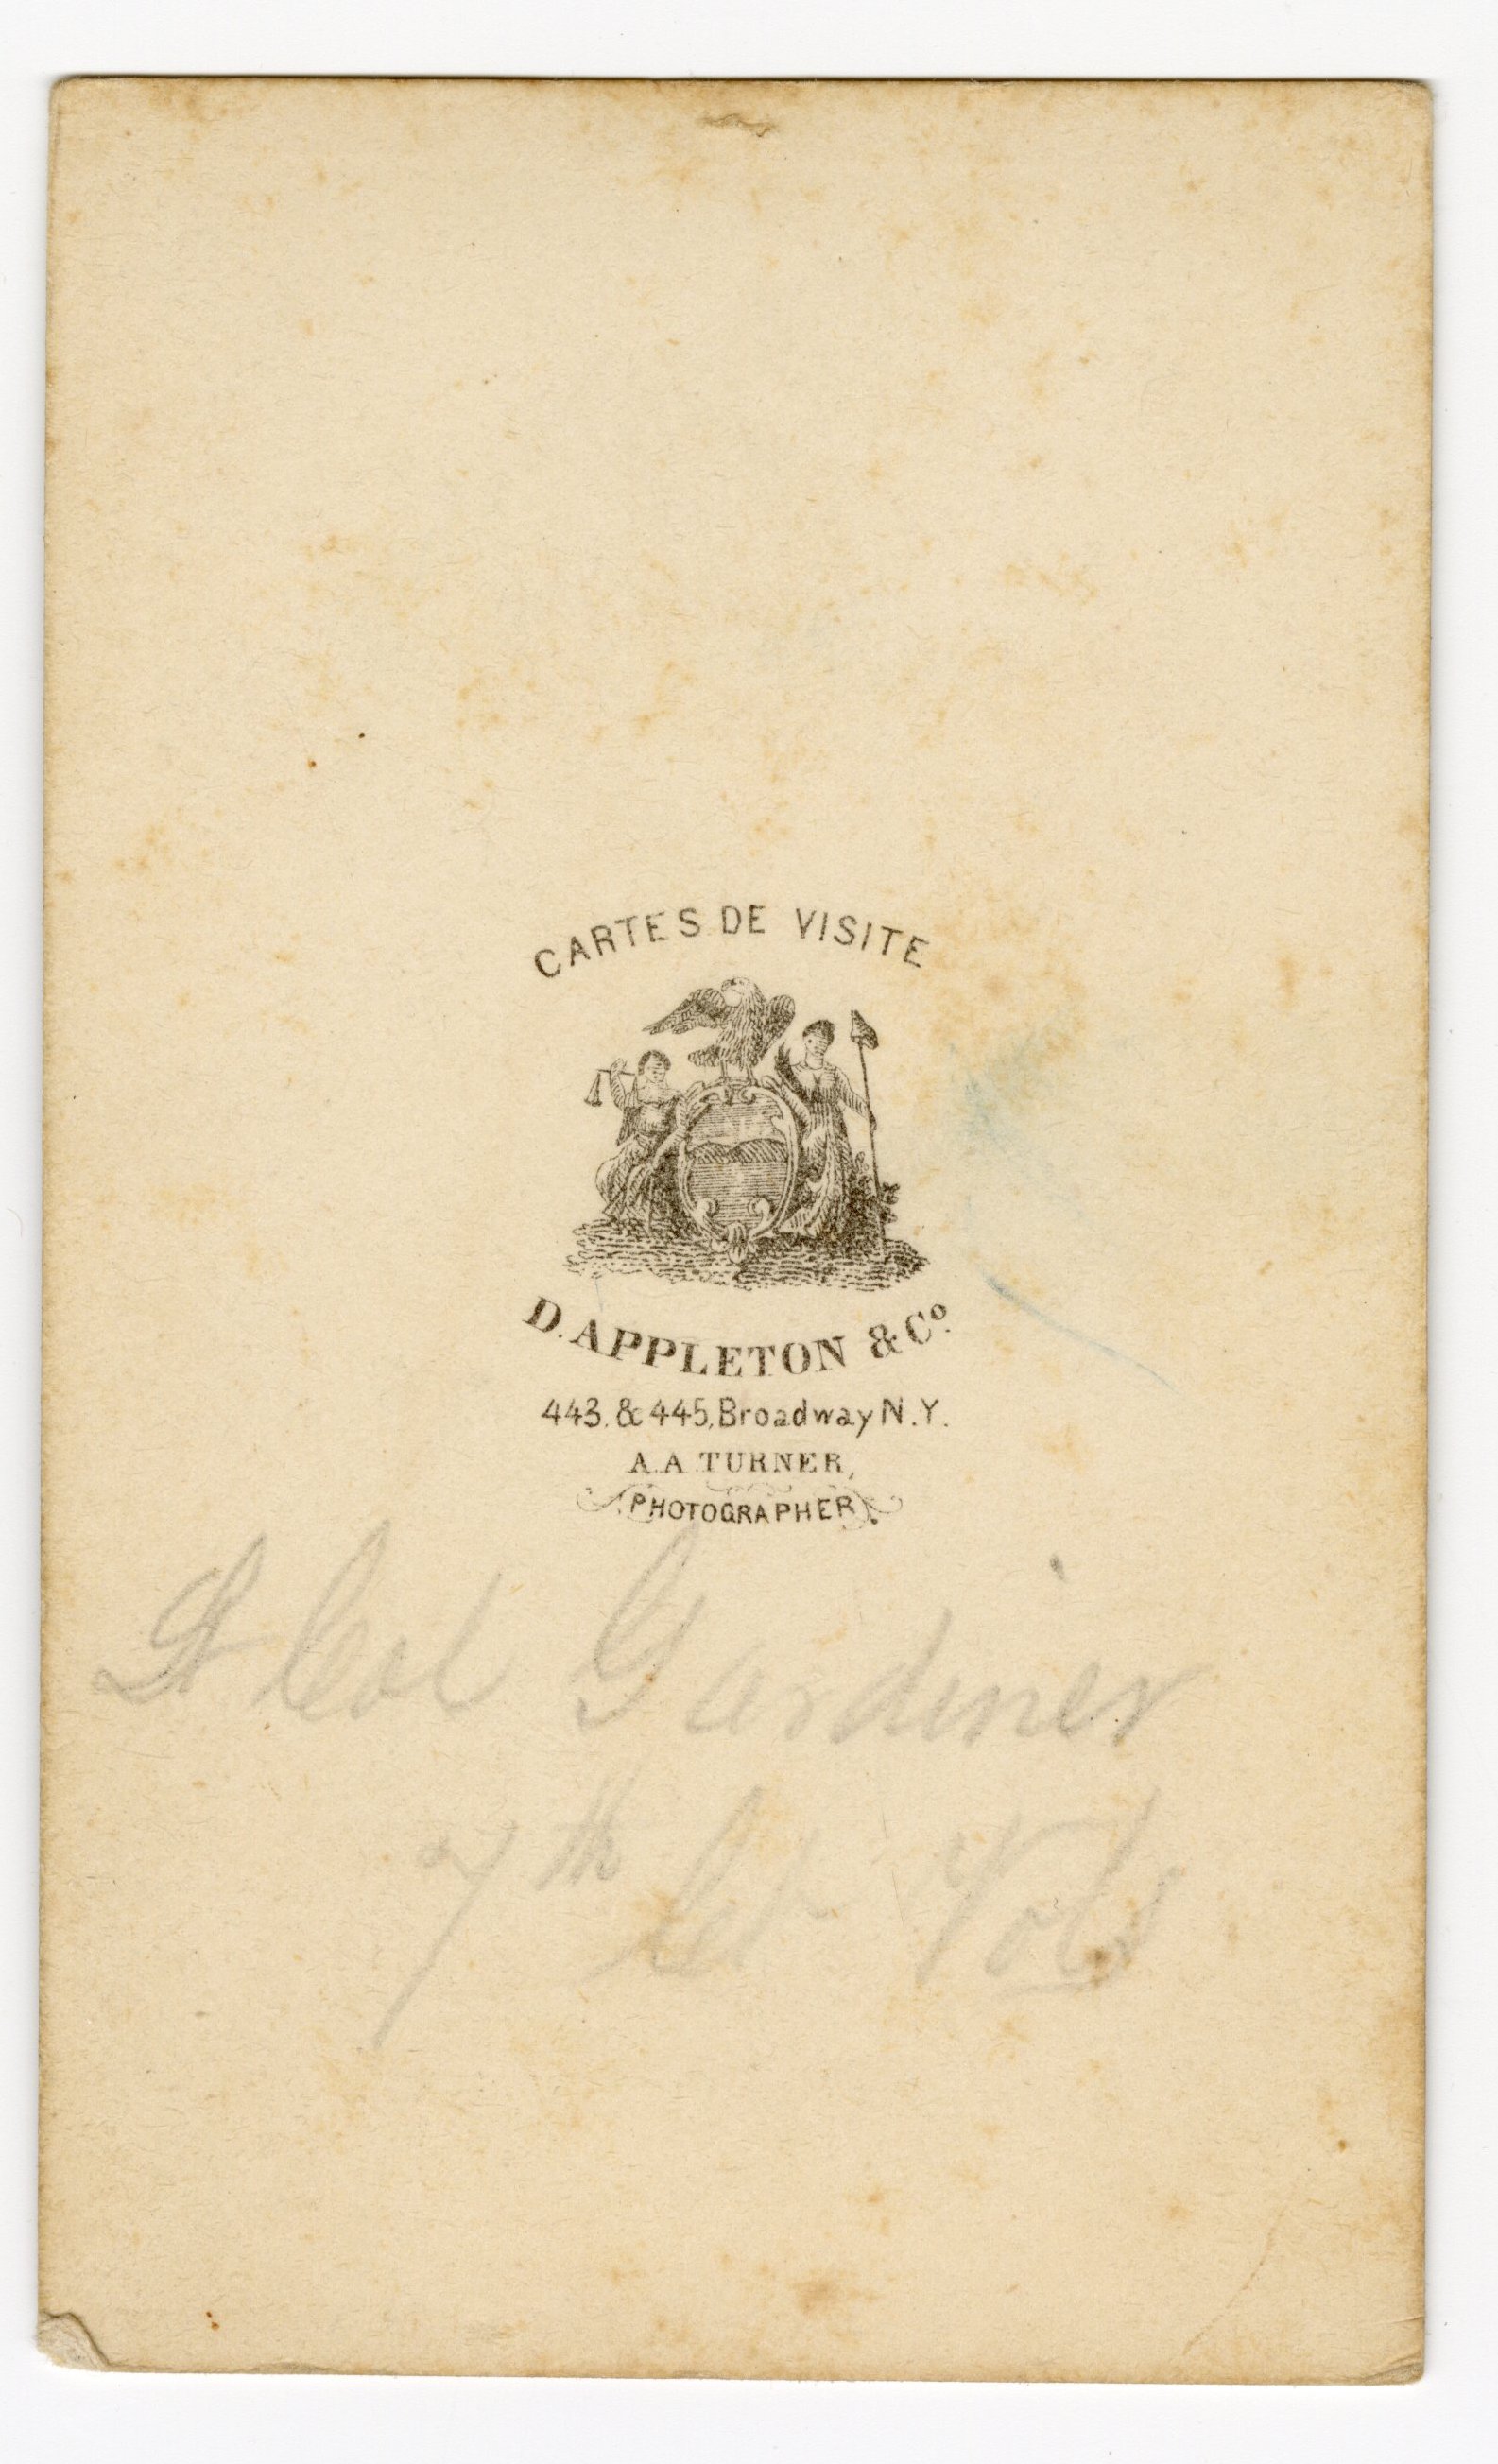 CARTES DE VISITE
D. APPLETON & Co.
443. & 445, Broadway N.Y.
A. A. TURNER,
PHOTOGRAPHER.
Lt Col Gardiner
7th Ct Vols